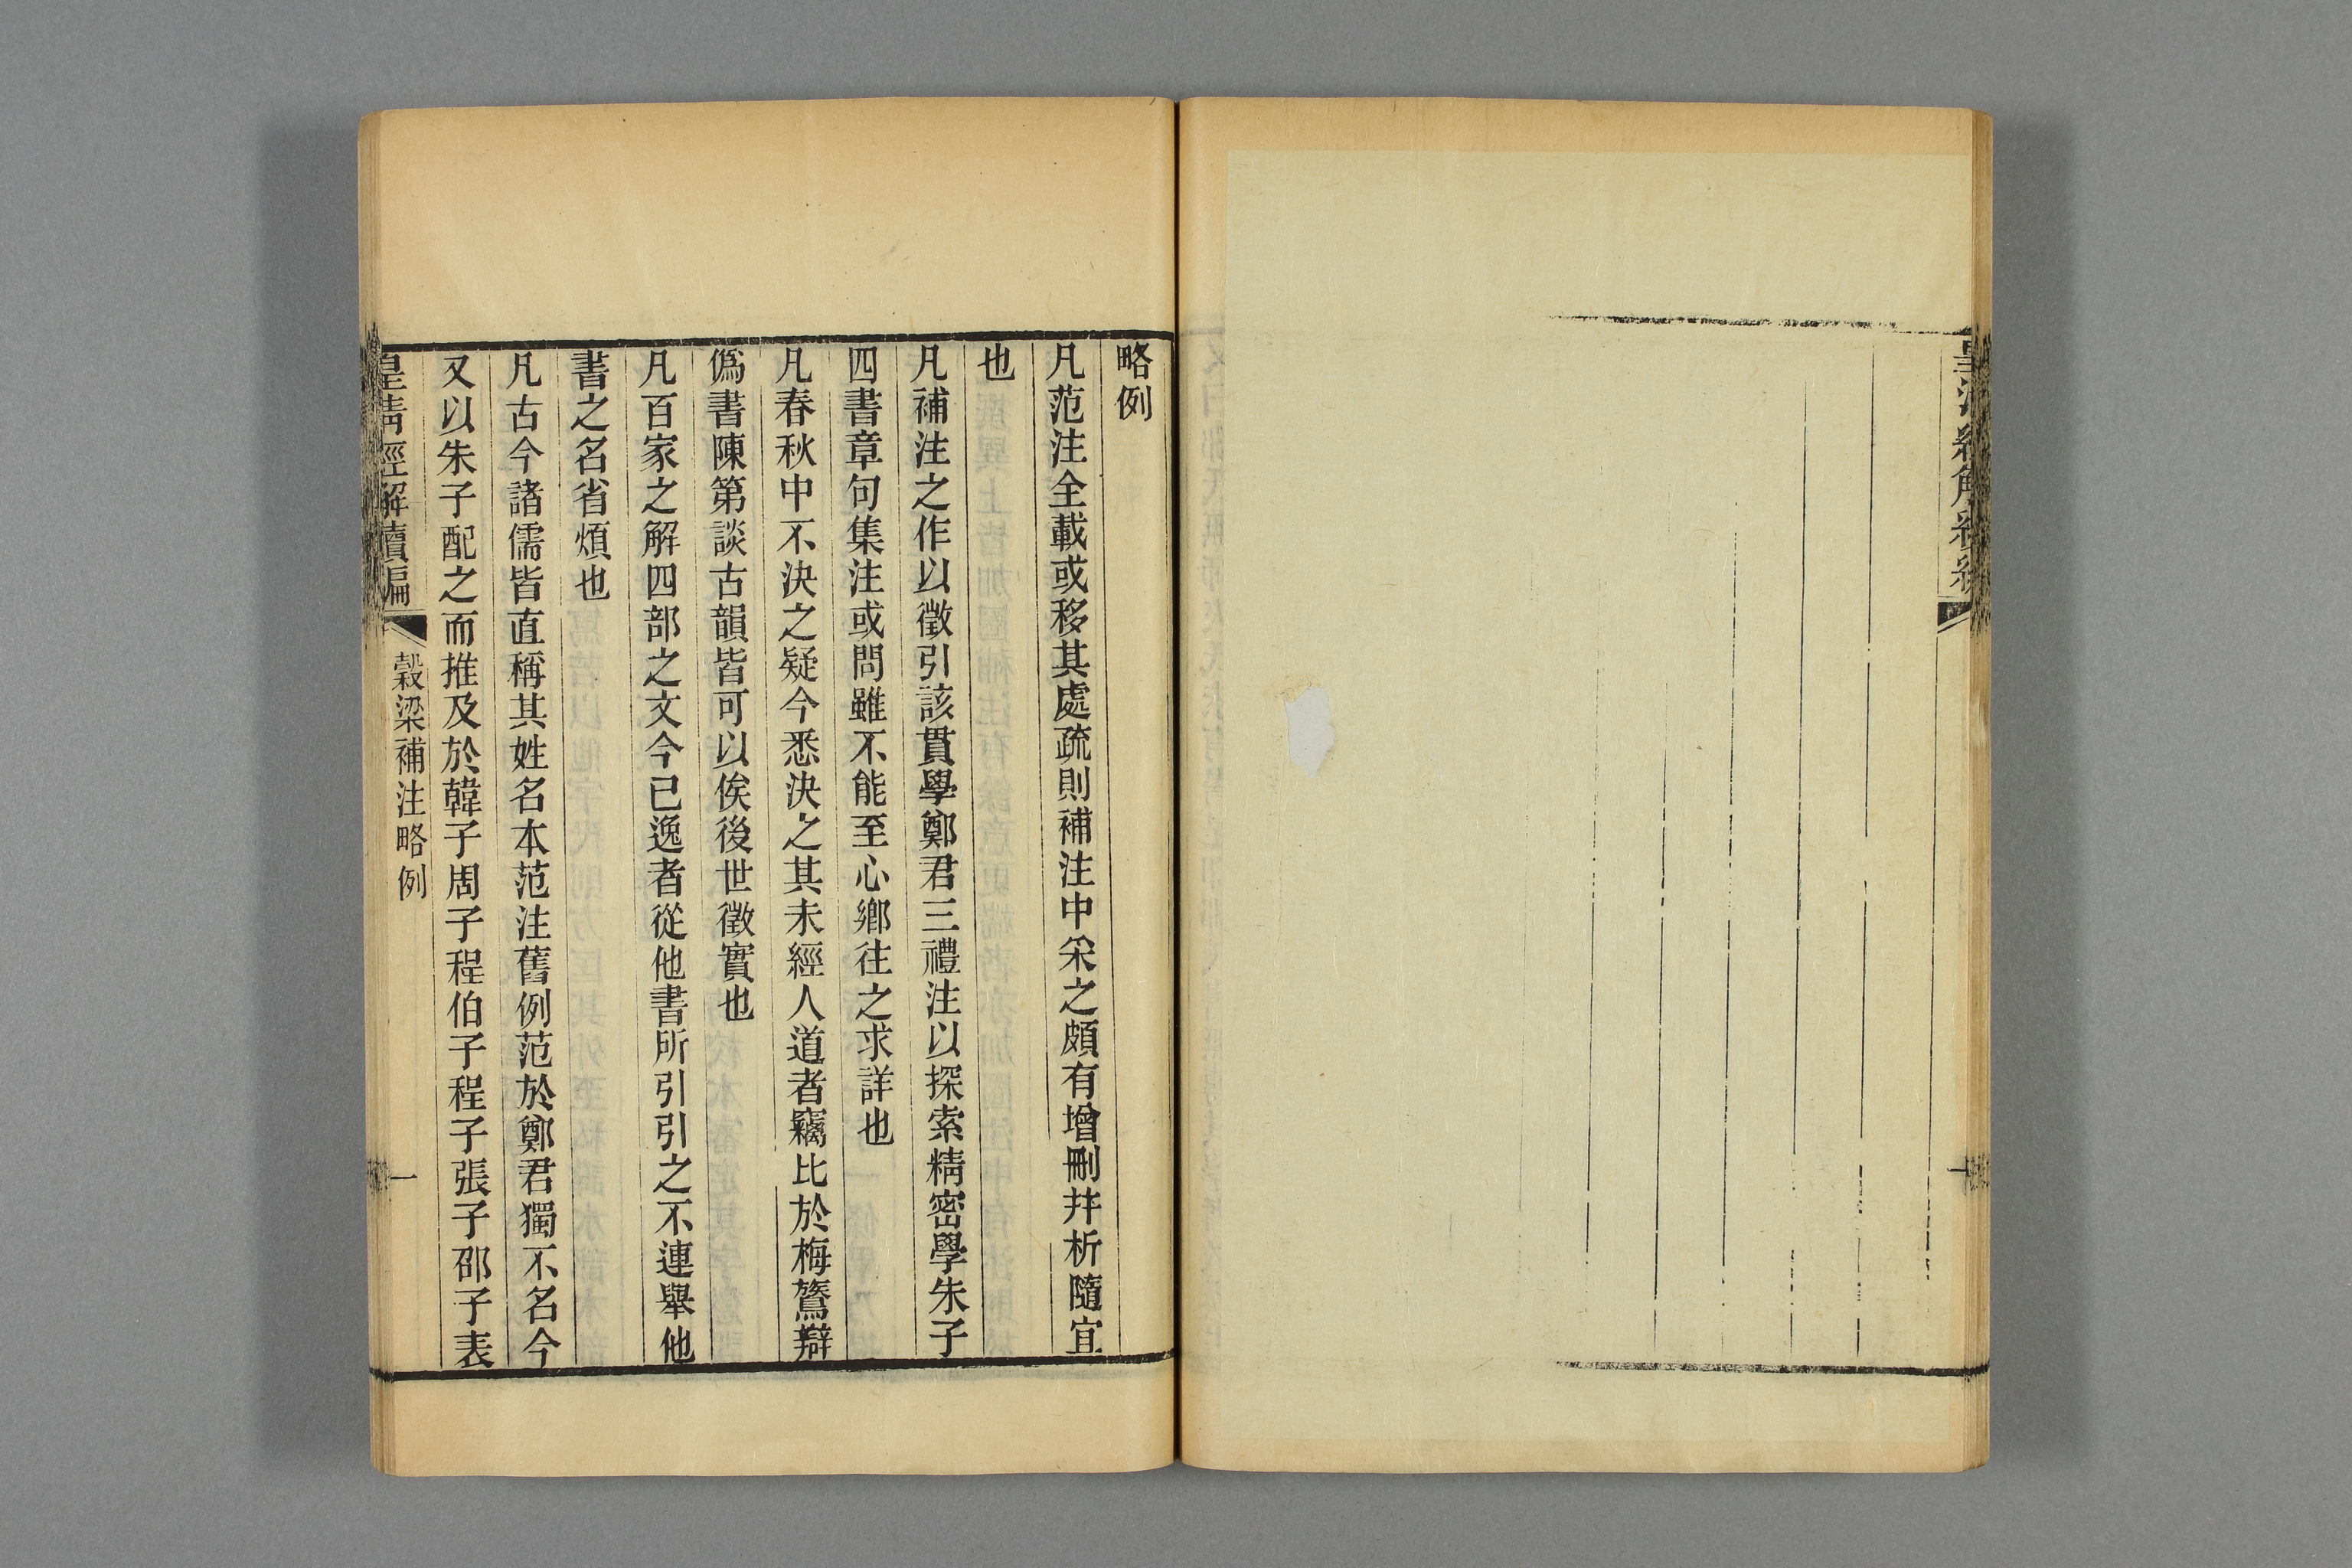 略例
凡范注全載或移其處疏則補注中采之頗有增刪幷析隨宜
也
凡補注之作以徵引該貫學鄭君三禮注以探索精密學朱子
四書章句集注或問雖不能至心鄉往之求詳也
凡春秋中不決之疑今悉決之其未經人道者竊比於梅鷟辯
僞書陳第談古韻皆可以俟後世徵實也
凡百家之解四部之文今已逸者從他書所引引之不連舉他
書之名省煩也
凡古今諸儒皆直稱其姓名本范注舊例范於鄭君獨不名今
又以朱子配之而推及於韓子周子程伯子程子張子邵子表
皇清經解續編
穀梁補注略例
一